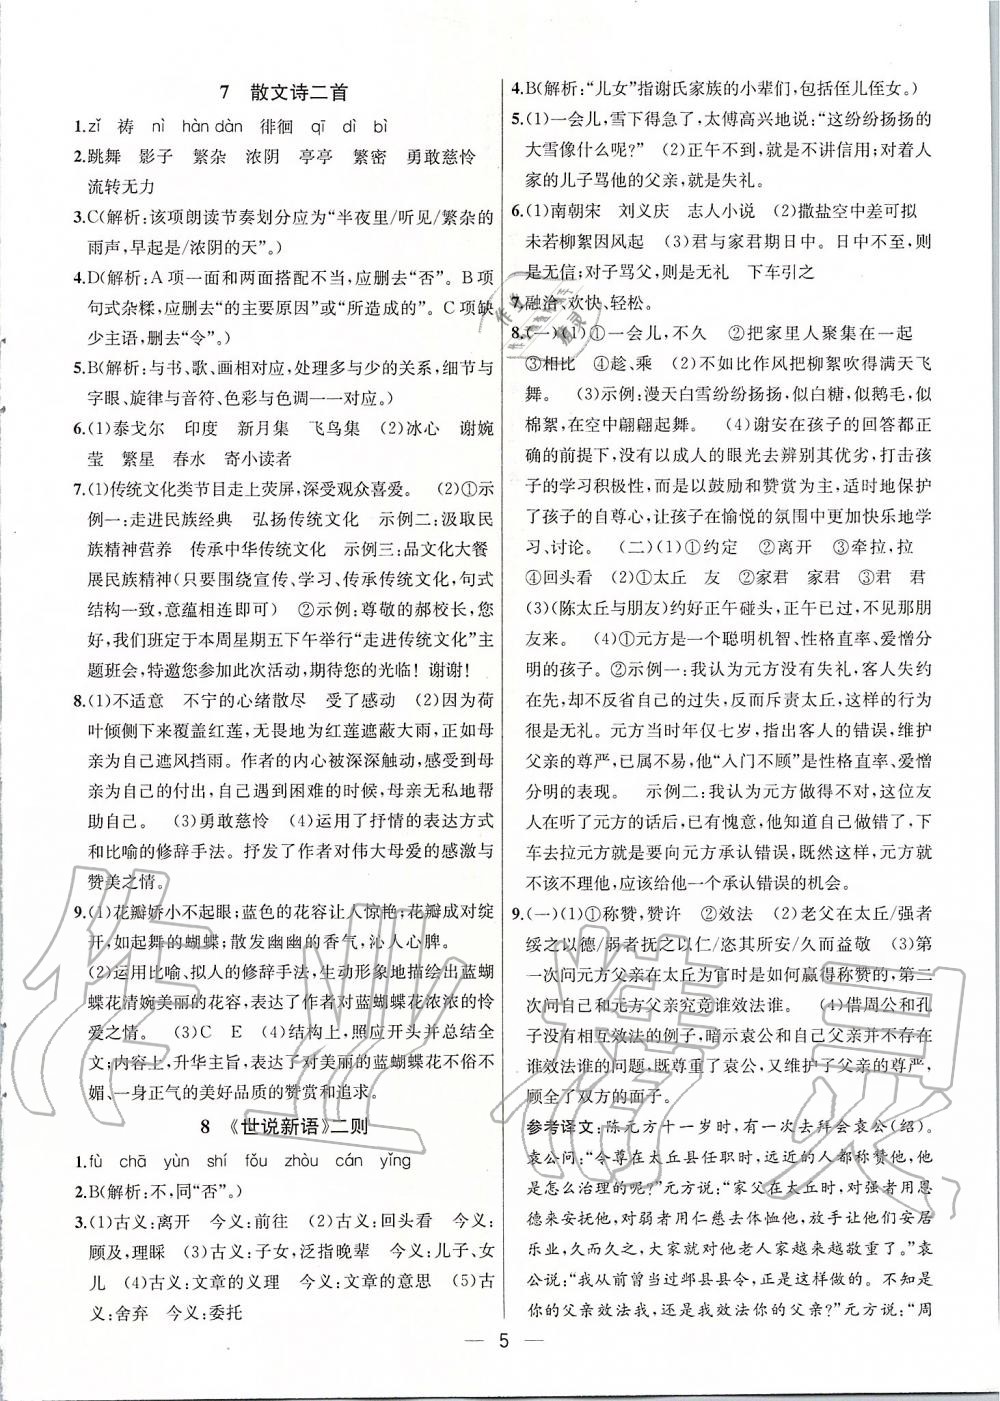 7 散文诗二首
1.zǐ 祷 nì hàn dàn 徘徊 qī dì bì
2.跳舞 影子 繁杂 浓阴 亭亭 繁密 勇敢慈怜
流转无力
3.C(解析:该项朗读节奏划分应为“半夜里/听见/繁杂的
雨声,早起是/浓阴的天”。)
4.D(解析:A项一面和两面搭配不当,应删去“否”。B项
句式杂糅,应删去“的主要原因”或“所造成的”。C项缺
少主语,删去“令”。)
5.B(解析:与书、歌、画相对应,处理多与少的关系,细节与
字眼、旋律与音符、色彩与色调一一对应。)
6.(1)泰戈尔 印度 新月集 飞鸟集 (2)冰心 谢婉
莹 繁星 春水 寄小读者
7.(1)传统文化类节目走上荧屏,深受观众喜爱。 (2)①示
例一:走进民族经典 弘扬传统文化 示例二:汲取民
族精神营养 传承中华传统文化 示例三:品文化大餐
展民族精神(只要围绕宣传、学习、传承传统文化,句式
结构一致,意蕴相连即可) ②示例:尊敬的郝校长,您
好,我们班定于本周星期五下午举行“走进传统文化”主
题班会,特邀您参加此次活动,期待您的光临!谢谢!
8.(1)不适意 不宁的心绪散尽 受了感动 (2)因为荷
叶倾侧下来覆盖红莲,无畏地为红莲遮蔽大雨,正如母
亲为自己遮风挡雨。作者的内心被深深触动,感受到母
亲为自己的付出,遇到困难的时候,母亲无私地帮
助自己。 (3)勇敢慈怜 (4)运用了抒情的表达方式
和比喻的修辞手法。抒发了作者对伟大母爱的感激与
赞美之情。
9.(1)花瓣娇小不起眼;蓝色的花容让人惊艳;花瓣成对绽
开,如起舞的蝴蝶;散发幽幽的香气,沁人心脾。
(2)运用比喻、拟人的修辞手法,生动形象地描绘出蓝蝴
蝶花清婉美丽的花容,表达了作者对蓝蝴蝶花浓浓的怜
爱之情。 (3)C E (4)结构上,照应开头并总结全
文;内容上,升华主旨,表达了对美丽的蓝蝴蝶花不俗不
媚、一身正气的美好品质的赞赏和追求。
8 《世说新语》二则
1.fù chā yùn shí fǒu zhòu cán yǐng
2.B(解析:不,同“否”。)
3.(1)古义:离开 今义:前往 (2)古义:回头看 今义:
顾及,理睬 (3)古义:子女,泛指晚辈 今义:儿子、女
儿 (4)古义:文章的义理 今义:文章的意思 (5)古
义:舍弃 今义:委托
4.B(解析:“儿女”指谢氏家族的小辈们,包括侄儿侄女。)
5.(1)一会儿,雪下得急了,太傅高兴地说:“这纷纷扬扬的
大雪像什么呢?” (2)正午不到,就是不讲信用;对着人
家的儿子骂他的父亲,就是失礼。
6.(1)南朝宋 刘义庆 志人小说 (2)撒盐空中差可拟
未若柳絮因风起 (3)君与家君期日中。日中不至,则
是无信;对子骂父,则是无礼 下车引之
7.融洽、欢快、轻松。
8.(一)(1)①一会儿,不久 ②把家里人聚集在一起
③相比 ④趁、乘 (2)不如比作风把柳絮吹得满天飞
舞。 (3)示例:漫天白雪纷纷扬扬,似白糖,似鹅毛,似
棉絮,在空中翩翩起舞。 (4)谢安在孩子的回答都正
确的前提下,没有以成人的眼光去辨别其优劣,打击孩
子的学习积极性,而是以鼓励和赞赏为主,适时地保护
了孩子的自尊心,让孩子在愉悦的氛围中更加快乐地学
习、讨论。 (二)(1)①约定 ②离开 ③牵拉,拉
④回头看 (2)①太丘 友 ②家君 家君 ③君 君
(3)(陈太丘与朋友)约好正午碰头,正午过后,那朋
友来。 (4)①元方是一个聪明机智、性格直率、爱憎分
明的孩子。 ②示例一:我认为元方没有失礼,客人失约
在先,却不反省自己的过失,反而斥责太丘,这样的行为
很是无礼。元方当时年仅七岁,指出客人的错误,维护
父亲的尊严,已属不易,他“入门不顾”是性格直率、爱憎
分明的表现。 示例二:我认为元方做得不对,这位友
人在听了元方的话后,已有愧意,他知道自己做错了,下
车去拉元方就是要向元方承认错误,既然这样,元方就
不该不理他,应该给他一个承认错误的机会。
9.(一)(1)①称赞,赞许 ②效法 (2)老父在太丘/强者
绥之以德/弱者抚之以仁/恣其所安/久而益敬 (3)第
一次问元方父亲在太丘是如何赢得称赞的,第二
次问自己和元方父亲究竟谁效法谁。 (4)借周公和孔
子没有相互效法的例子,暗示袁公和自己父亲并不存在
谁效法谁的问题,既尊重了袁公,又维护了父亲的尊严,
顾全了双方的面子。
参考译文:陈元方十一岁时,有一次去拜会袁公(绍)。
袁公问:“令尊在太丘县任职时,远近的人都称赞他,他
是怎么治理的呢?”元方说:“家父在太丘时,对强者用恩
德来安抚他,对弱者用仁慈去体恤他,放手让他们安居
乐业,久而久之,大家就对他老人家越来越敬重了。”袁
公说:“我从前曾当过邺县县令,正是这样做的。不知是
你的父亲效法我,还是我效法你的父亲?”元方说:“周
5
作业精灵